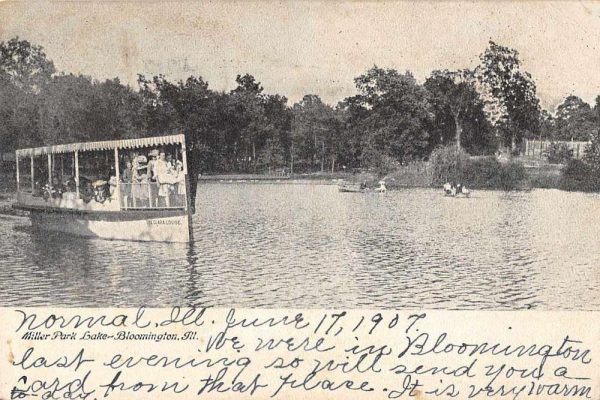 CLARA LOUISE.
Normal, Ill. June 17, 1907.
Miller Park Lake—Bloomington, Ill.
We were in Bloomington
last evening so will send you a
card from that place. It is very warm
to-day.